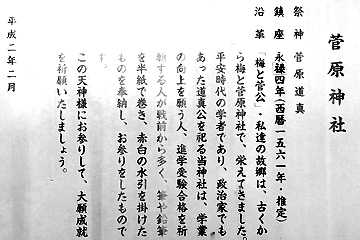 菅原神社
祭神 菅原道真
鎮座 永禄四年(西暦一五六一年・推定)
沿革 「梅と菅公」・私達の故郷は、古くか
ら梅と菅原神社で、栄えてきました。
平安時代の学者であり、政治家でも
あった道真公を祀る当神社は、学業
の向上を願う人、進学受験合格を祈
願する人が戦前から多く、筆や鉛筆
を半紙で巻き、赤白の水引を掛けた
ものを奉納し、お参りをしたもので
す。
この天神様にお参りして、大願成就
を祈願いたしましょう。
平成二年二月